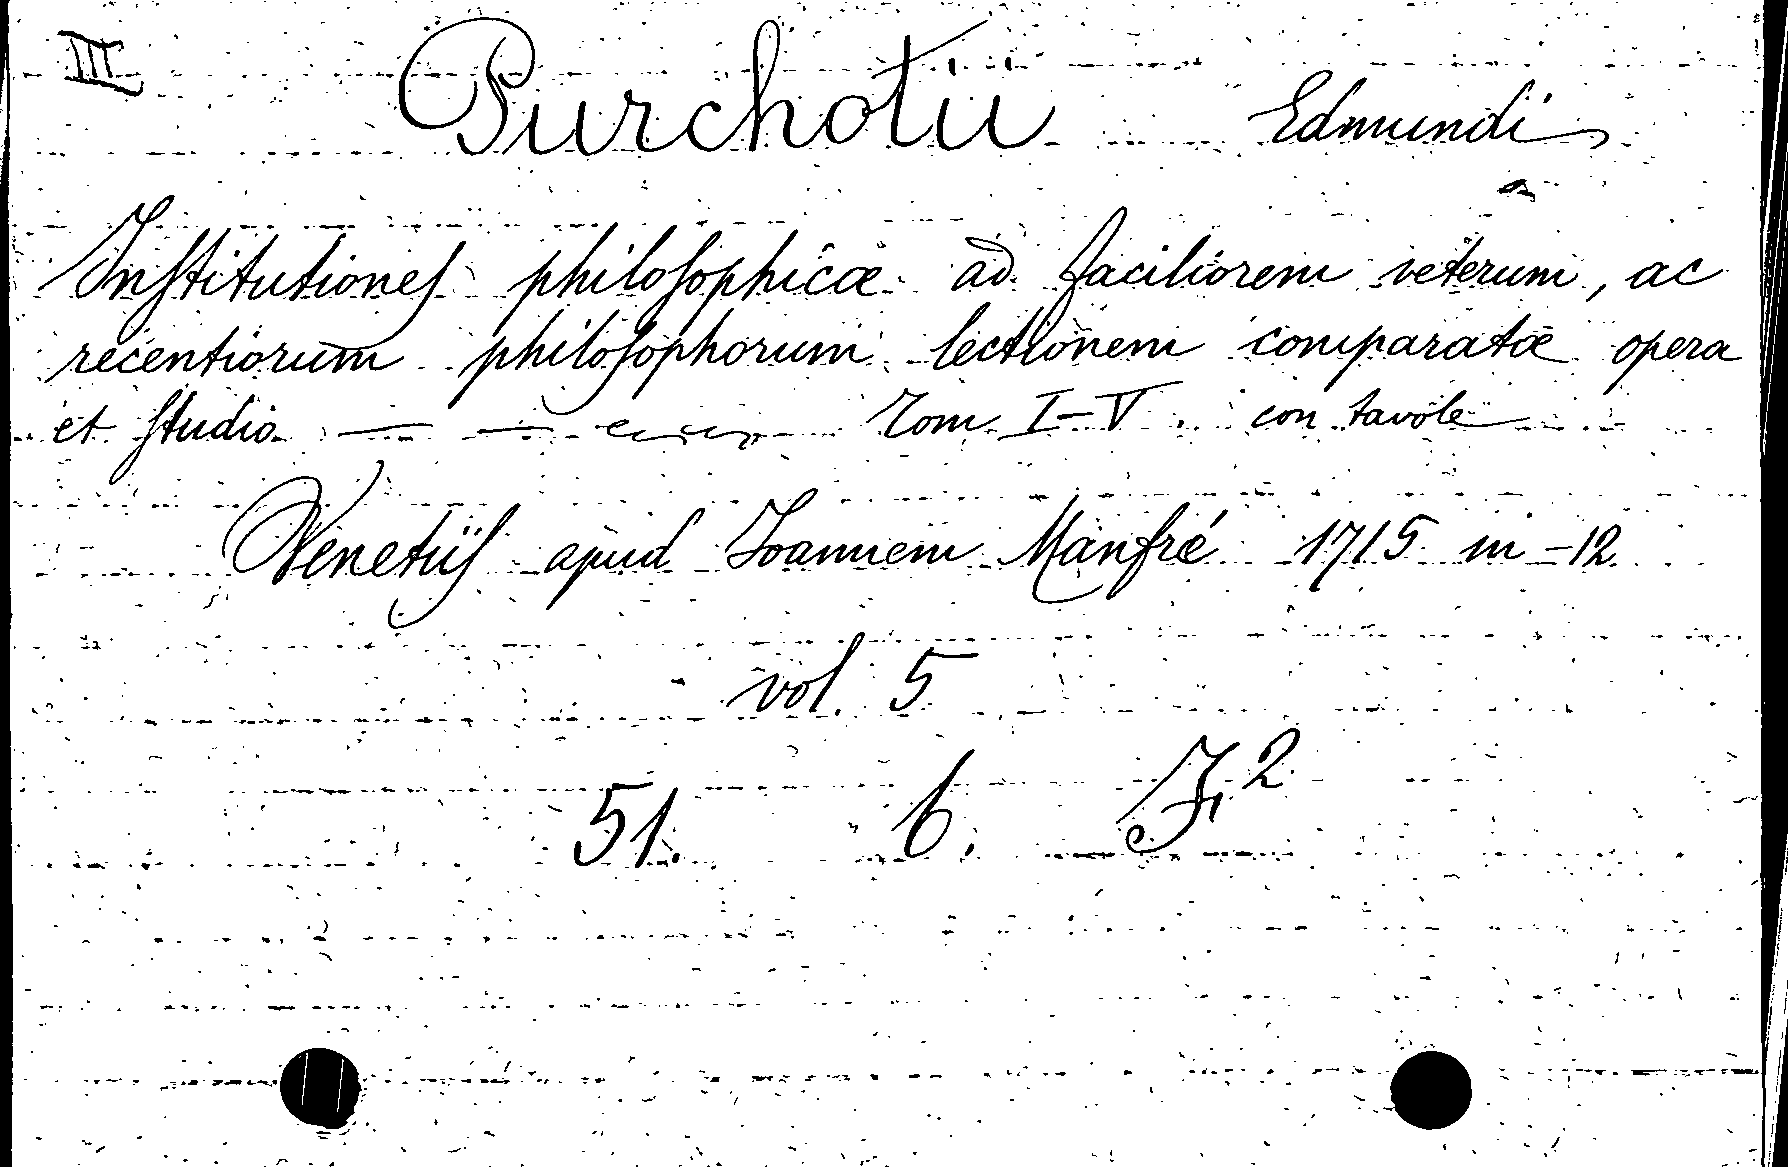 III Purchotii Edmundi
Institutiones philosophicæ ad faciliorem veterum, ac
recentiorum philosophorum lectionem comparatæ opera
et studio — — Tom I-V. con tavole
Venetiis apud Ioannem Manfré 1715 in-12
vol. 5
51. 6. F,2